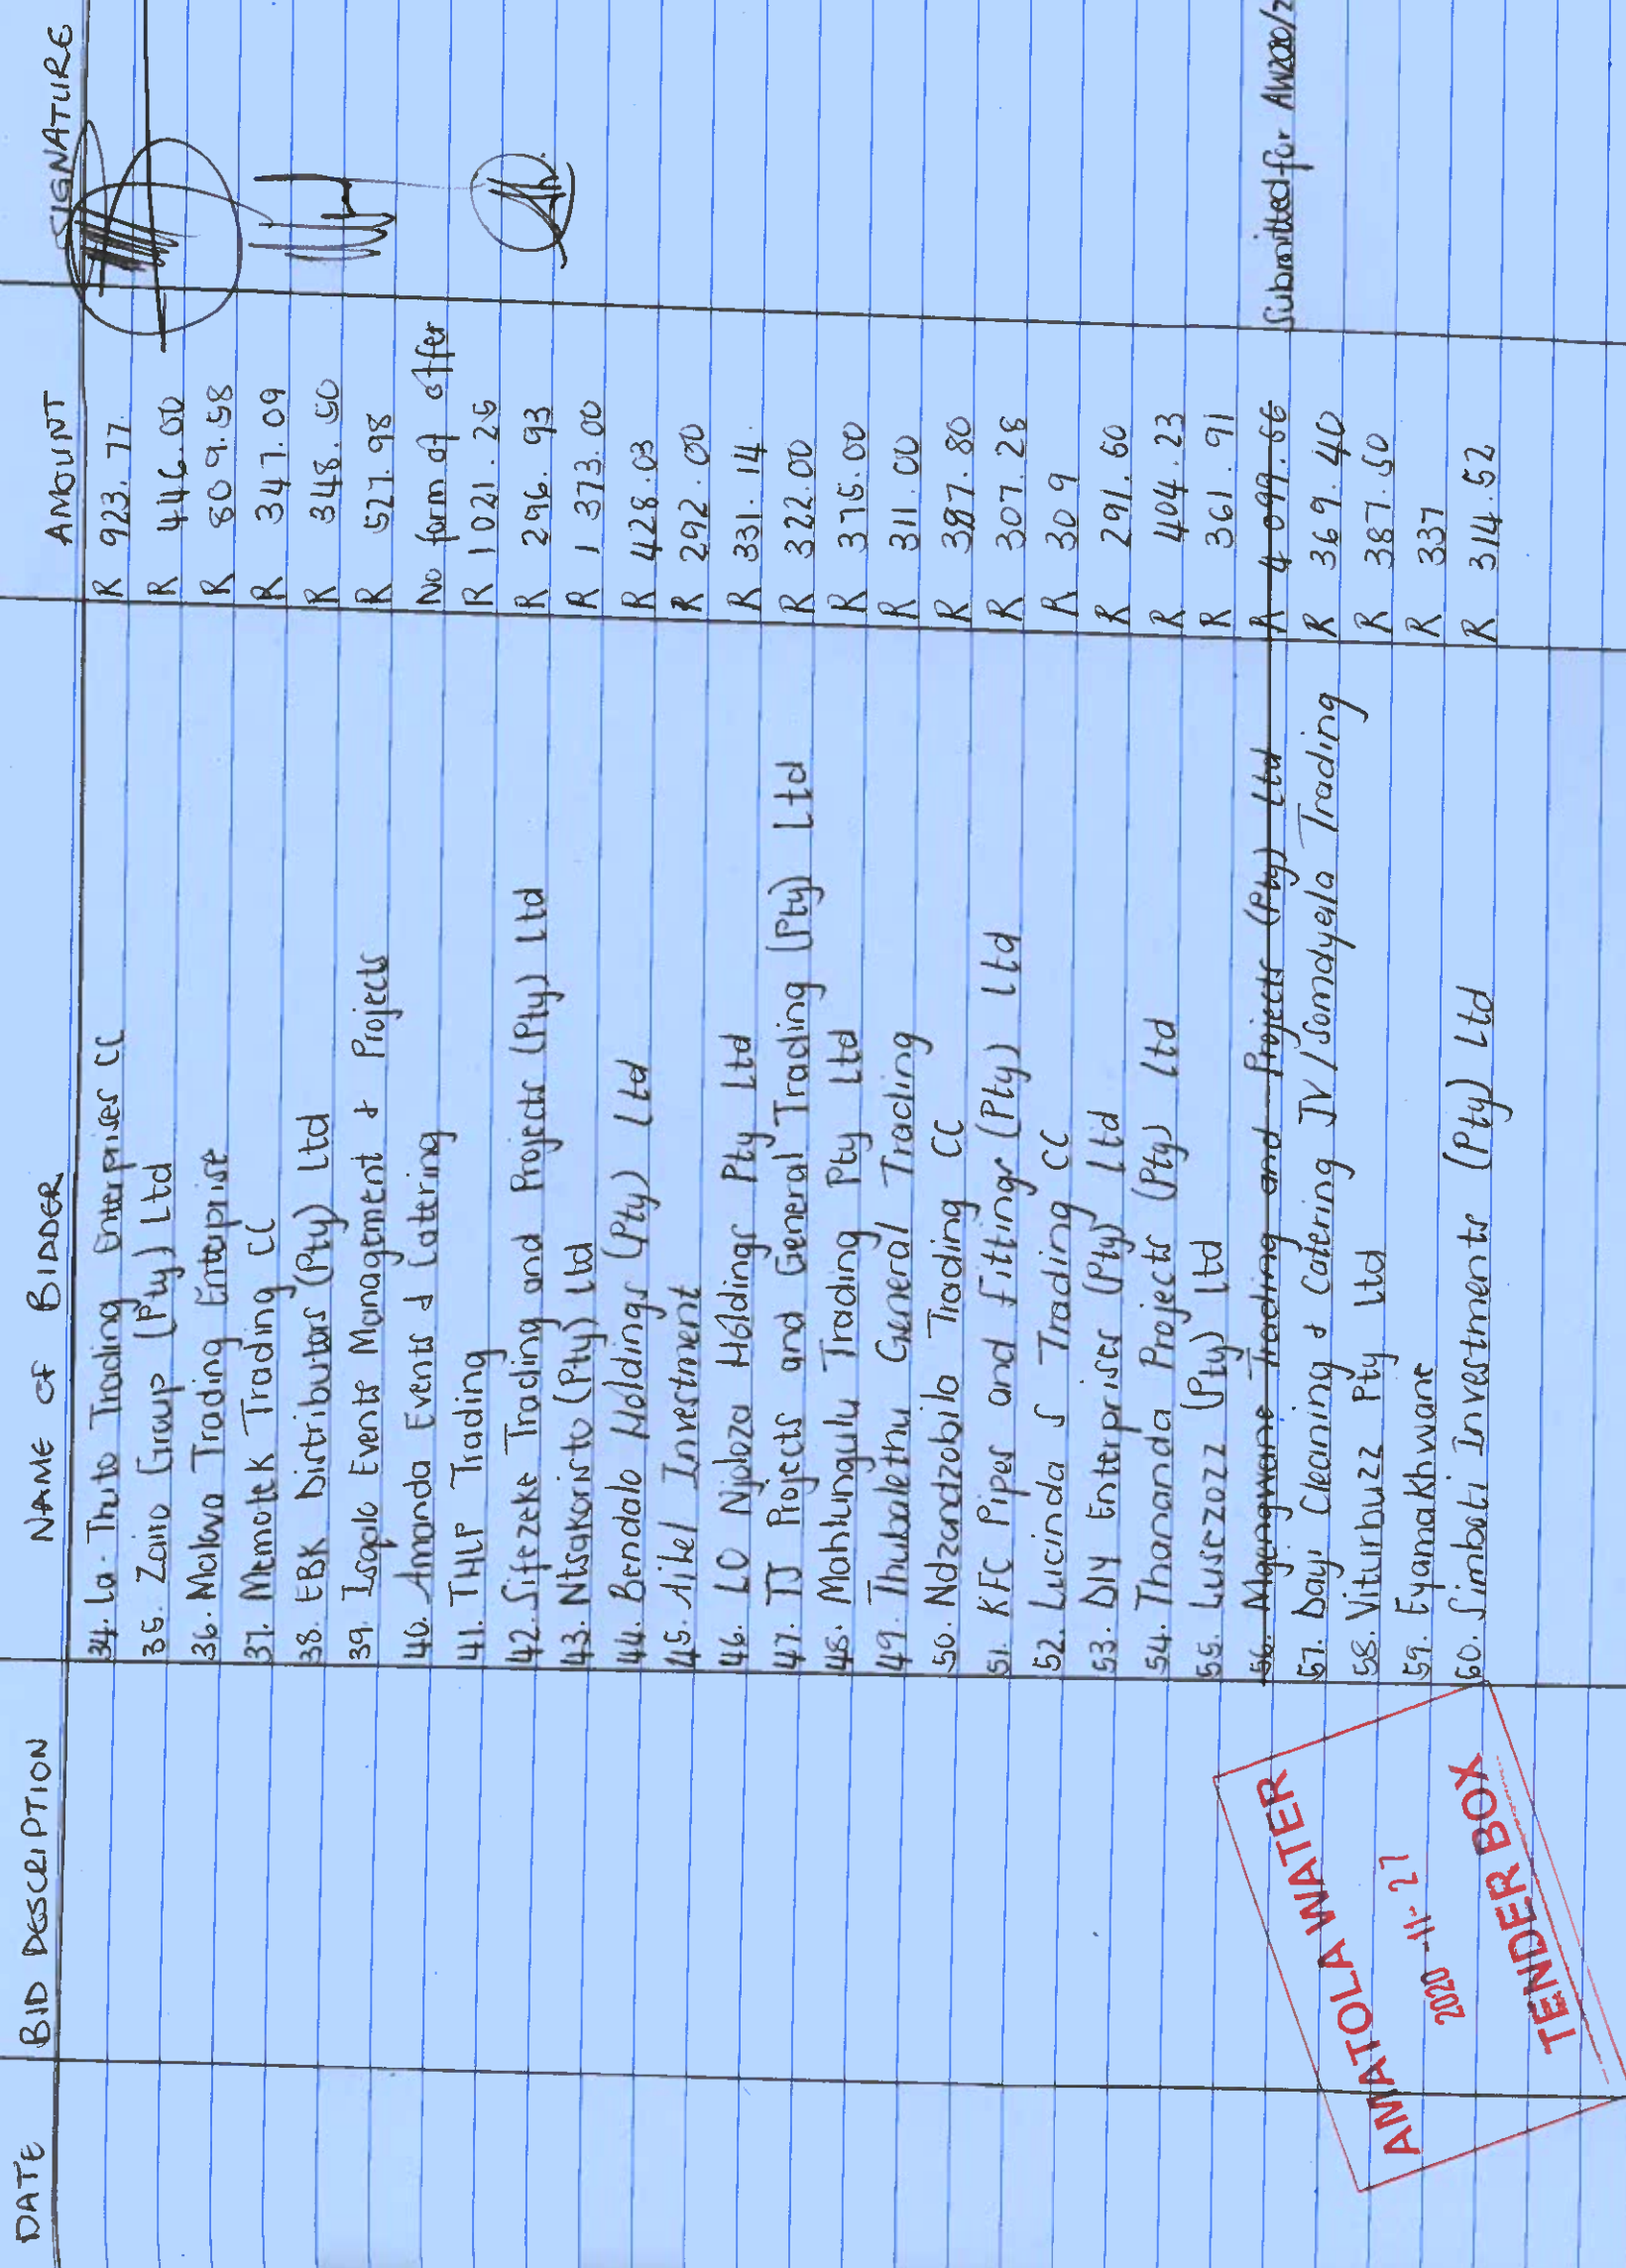 DATE BID DESCRIPTION NAME OF BIDDER AMOUNT SIGNATURE
34. La-Thuto Trading Enterprises CC R 923.77
35. Zairo Group (Pty) Ltd R 446.00
36. Malava Trading Enterprise R 809.58
37. Memotek Trading CC R 347.09
38. EBK Distributors (Pty) Ltd R 348.50
39. Isqalo Events Management & Projects R 527.98
40. Amanda Events & Cattering No form of offer
41. THLP Trading R 1021.25
42. Sifezeke Trading and Projects (Pty) Ltd R 296.93
43. Ntsakoristo (Pty) Ltd R 1 373.00
44. Bendalo Holdings (Pty) Ltd R 428.03
45. Aihel Investment R 292.00
46. LO Njoloza Holdings Pty Ltd R 331.14
47. TJ Projects and General Trading (Pty) Ltd R 322.00
48. Mahlungulu Trading Pty Ltd R 375.00
49. Thubalethu General Trading R 311.00
50. Ndzandzobila Trading CC R 397.80
51. KFC Pipes and Fittings (Pty) Ltd R 307.28
52. Lucinda S Trading CC R 309
53. DIY Enterprises (Pty) Ltd R 291.60
54. Thananda Projects (Pty) Ltd R 404.23
55. Lusezozz (Pty) Ltd R 361.91
56. Magengwane Trading and Projects (Pty) Ltd R 4 099.66 Submitted for AW200/2
57. Dayi Cleaning & Catering JV/Somdyala Trading R 369.40
58. Viturhuzz Pty Ltd R 387.50
59. Eyamakhwane R 337
60. Simbati Investments (Pty) Ltd R 314.52
AMATOLA WATER
2020 -11- 27
TENDER BOX